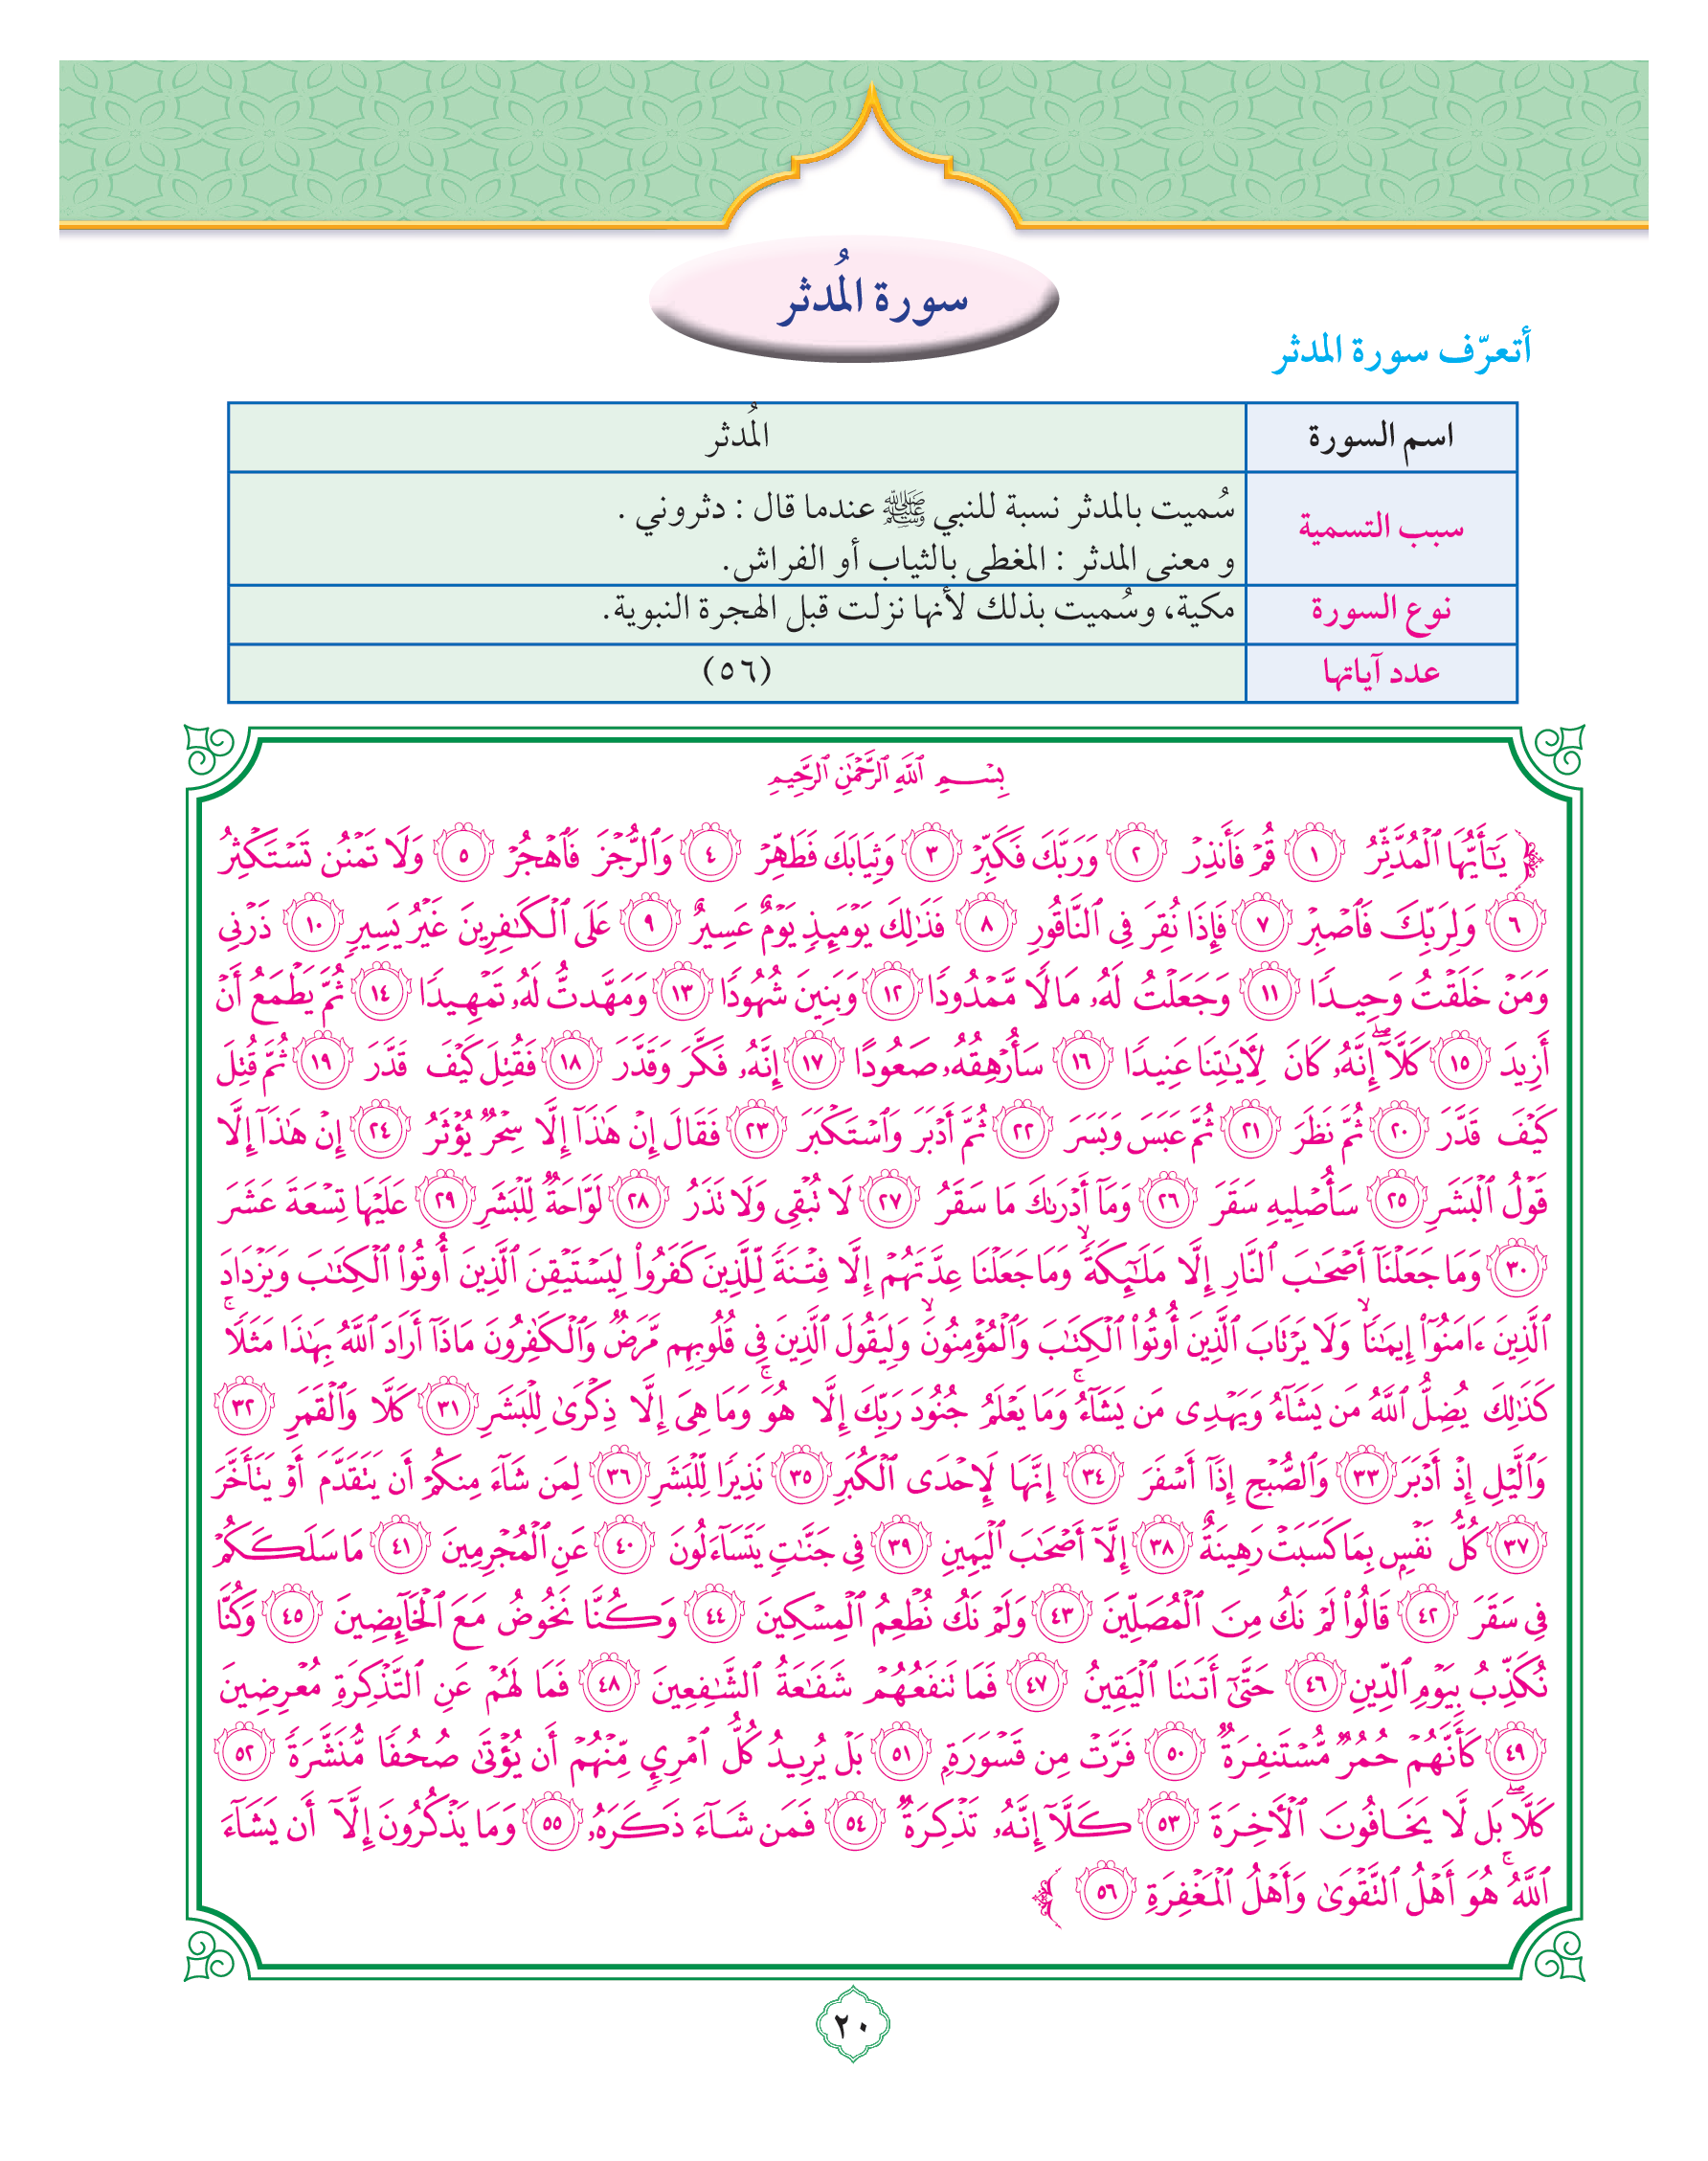 سورة المُدثر
أتعرّف سورة المدثر
اسم السورة
المُدثر
سبب التسمية
سُميت بالمدثر نسبة للنبي ﷺ عندما قال : دثروني .
و معنى المدثر : المغطى بالثياب أو الفراش.
نوع السورة
مكية، وسُميت بذلك لأنها نزلت قبل الهجرة النبوية.
عدد آياتها
(٥٦)
بِسْمِ ٱللَّهِ ٱلرَّحْمَٰنِ ٱلرَّحِيمِ
﴿ يَٰٓأَيُّهَا ٱلْمُدَّثِّرُ ١ قُمْ فَأَنذِرْ ٢ وَرَبَّكَ فَكَبِّرْ ٣ وَثِيَابَكَ فَطَهِّرْ ٤ وَٱلرُّجْزَ فَٱهْجُرْ ٥ وَلَا تَمْنُن تَسْتَكْثِرُ
٦ وَلِرَبِّكَ فَٱصْبِرْ ٧ فَإِذَا نُقِرَ فِى ٱلنَّاقُورِ ٨ فَذَٰلِكَ يَوْمَئِذٍ يَوْمٌ عَسِيرٌ ٩ عَلَى ٱلْكَٰفِرِينَ غَيْرُ يَسِيرٍ ١٠ ذَرْنِى
وَمَنْ خَلَقْتُ وَحِيدًا ١١ وَجَعَلْتُ لَهُۥ مَالًا مَّمْدُودًا ١٢ وَبَنِينَ شُهُودًا ١٣ وَمَهَّدتُّ لَهُۥ تَمْهِيدًا ١٤ ثُمَّ يَطْمَعُ أَنْ
أَزِيدَ ١٥ كَلَّآ ۖ إِنَّهُۥ كَانَ لِءَايَٰتِنَا عَنِيدًا ١٦ سَأُرْهِقُهُۥ صَعُودًا ١٧ إِنَّهُۥ فَكَّرَ وَقَدَّرَ ١٨ فَقُتِلَ كَيْفَ قَدَّرَ ١٩ ثُمَّ قُتِلَ
كَيْفَ قَدَّرَ ٢٠ ثُمَّ نَظَرَ ٢١ ثُمَّ عَبَسَ وَبَسَرَ ٢٢ ثُمَّ أَدْبَرَ وَٱسْتَكْبَرَ ٢٣ فَقَالَ إِنْ هَٰذَآ إِلَّا سِحْرٌ يُؤْثَرُ ٢٤ إِنْ هَٰذَآ إِلَّا
قَوْلُ ٱلْبَشَرِ ٢٥ سَأُصْلِيهِ سَقَرَ ٢٦ وَمَآ أَدْرَىٰكَ مَا سَقَرُ ٢٧ لَا تُبْقِى وَلَا تَذَرُ ٢٨ لَوَّاحَةٌ لِّلْبَشَرِ ٢٩ عَلَيْهَا تِسْعَةَ عَشَرَ
٣٠ وَمَا جَعَلْنَآ أَصْحَٰبَ ٱلنَّارِ إِلَّا مَلَٰٓئِكَةً ۙ وَمَا جَعَلْنَا عِدَّتَهُمْ إِلَّا فِتْنَةً لِّلَّذِينَ كَفَرُوا۟ لِيَسْتَيْقِنَ ٱلَّذِينَ أُوتُوا۟ ٱلْكِتَٰبَ وَيَزْدَادَ
ٱلَّذِينَ ءَامَنُوٓا۟ إِيمَٰنًا ۙ وَلَا يَرْتَابَ ٱلَّذِينَ أُوتُوا۟ ٱلْكِتَٰبَ وَٱلْمُؤْمِنُونَ ۙ وَلِيَقُولَ ٱلَّذِينَ فِى قُلُوبِهِم مَّرَضٌ وَٱلْكَٰفِرُونَ مَاذَآ أَرَادَ ٱللَّهُ بِهَٰذَا مَثَلًا ۚ
كَذَٰلِكَ يُضِلُّ ٱللَّهُ مَن يَشَآءُ وَيَهْدِى مَن يَشَآءُ ۚ وَمَا يَعْلَمُ جُنُودَ رَبِّكَ إِلَّا هُوَ ۚ وَمَا هِىَ إِلَّا ذِكْرَىٰ لِلْبَشَرِ ٣١ كَلَّا وَٱلْقَمَرِ ٣٢
وَٱلَّيْلِ إِذْ أَدْبَرَ ٣٣ وَٱلصُّبْحِ إِذَآ أَسْفَرَ ٣٤ إِنَّهَا لَإِحْدَى ٱلْكُبَرِ ٣٥ نَذِيرًا لِّلْبَشَرِ ٣٦ لِمَن شَآءَ مِنكُمْ أَن يَتَقَدَّمَ أَوْ يَتَأَخَّرَ
٣٧ كُلُّ نَفْسٍۭ بِمَا كَسَبَتْ رَهِينَةٌ ٣٨ إِلَّآ أَصْحَٰبَ ٱلْيَمِينِ ٣٩ فِى جَنَّٰتٍ يَتَسَآءَلُونَ ٤٠ عَنِ ٱلْمُجْرِمِينَ ٤١ مَا سَلَكَكُمْ
فِى سَقَرَ ٤٢ قَالُوا۟ لَمْ نَكُ مِنَ ٱلْمُصَلِّينَ ٤٣ وَلَمْ نَكُ نُطْعِمُ ٱلْمِسْكِينَ ٤٤ وَكُنَّا نَخُوضُ مَعَ ٱلْخَآئِضِينَ ٤٥ وَكُنَّا
نُكَذِّبُ بِيَوْمِ ٱلدِّينِ ٤٦ حَتَّىٰٓ أَتَىٰنَا ٱلْيَقِينُ ٤٧ فَمَا تَنفَعُهُمْ شَفَٰعَةُ ٱلشَّٰفِعِينَ ٤٨ فَمَا لَهُمْ عَنِ ٱلتَّذْكِرَةِ مُعْرِضِينَ
٤٩ كَأَنَّهُمْ حُمُرٌ مُّسْتَنفِرَةٌ ٥٠ فَرَّتْ مِن قَسْوَرَةٍۭ ٥١ بَلْ يُرِيدُ كُلُّ ٱمْرِئٍ مِّنْهُمْ أَن يُؤْتَىٰ صُحُفًا مُّنَشَّرَةً ٥٢
كَلَّا ۖ بَل لَّا يَخَافُونَ ٱلْءَاخِرَةَ ٥٣ كَلَّآ إِنَّهُۥ تَذْكِرَةٌ ٥٤ فَمَن شَآءَ ذَكَرَهُۥ ٥٥ وَمَا يَذْكُرُونَ إِلَّآ أَن يَشَآءَ
ٱللَّهُ ۚ هُوَ أَهْلُ ٱلتَّقْوَىٰ وَأَهْلُ ٱلْمَغْفِرَةِ ٥٦ ﴾
٢٠